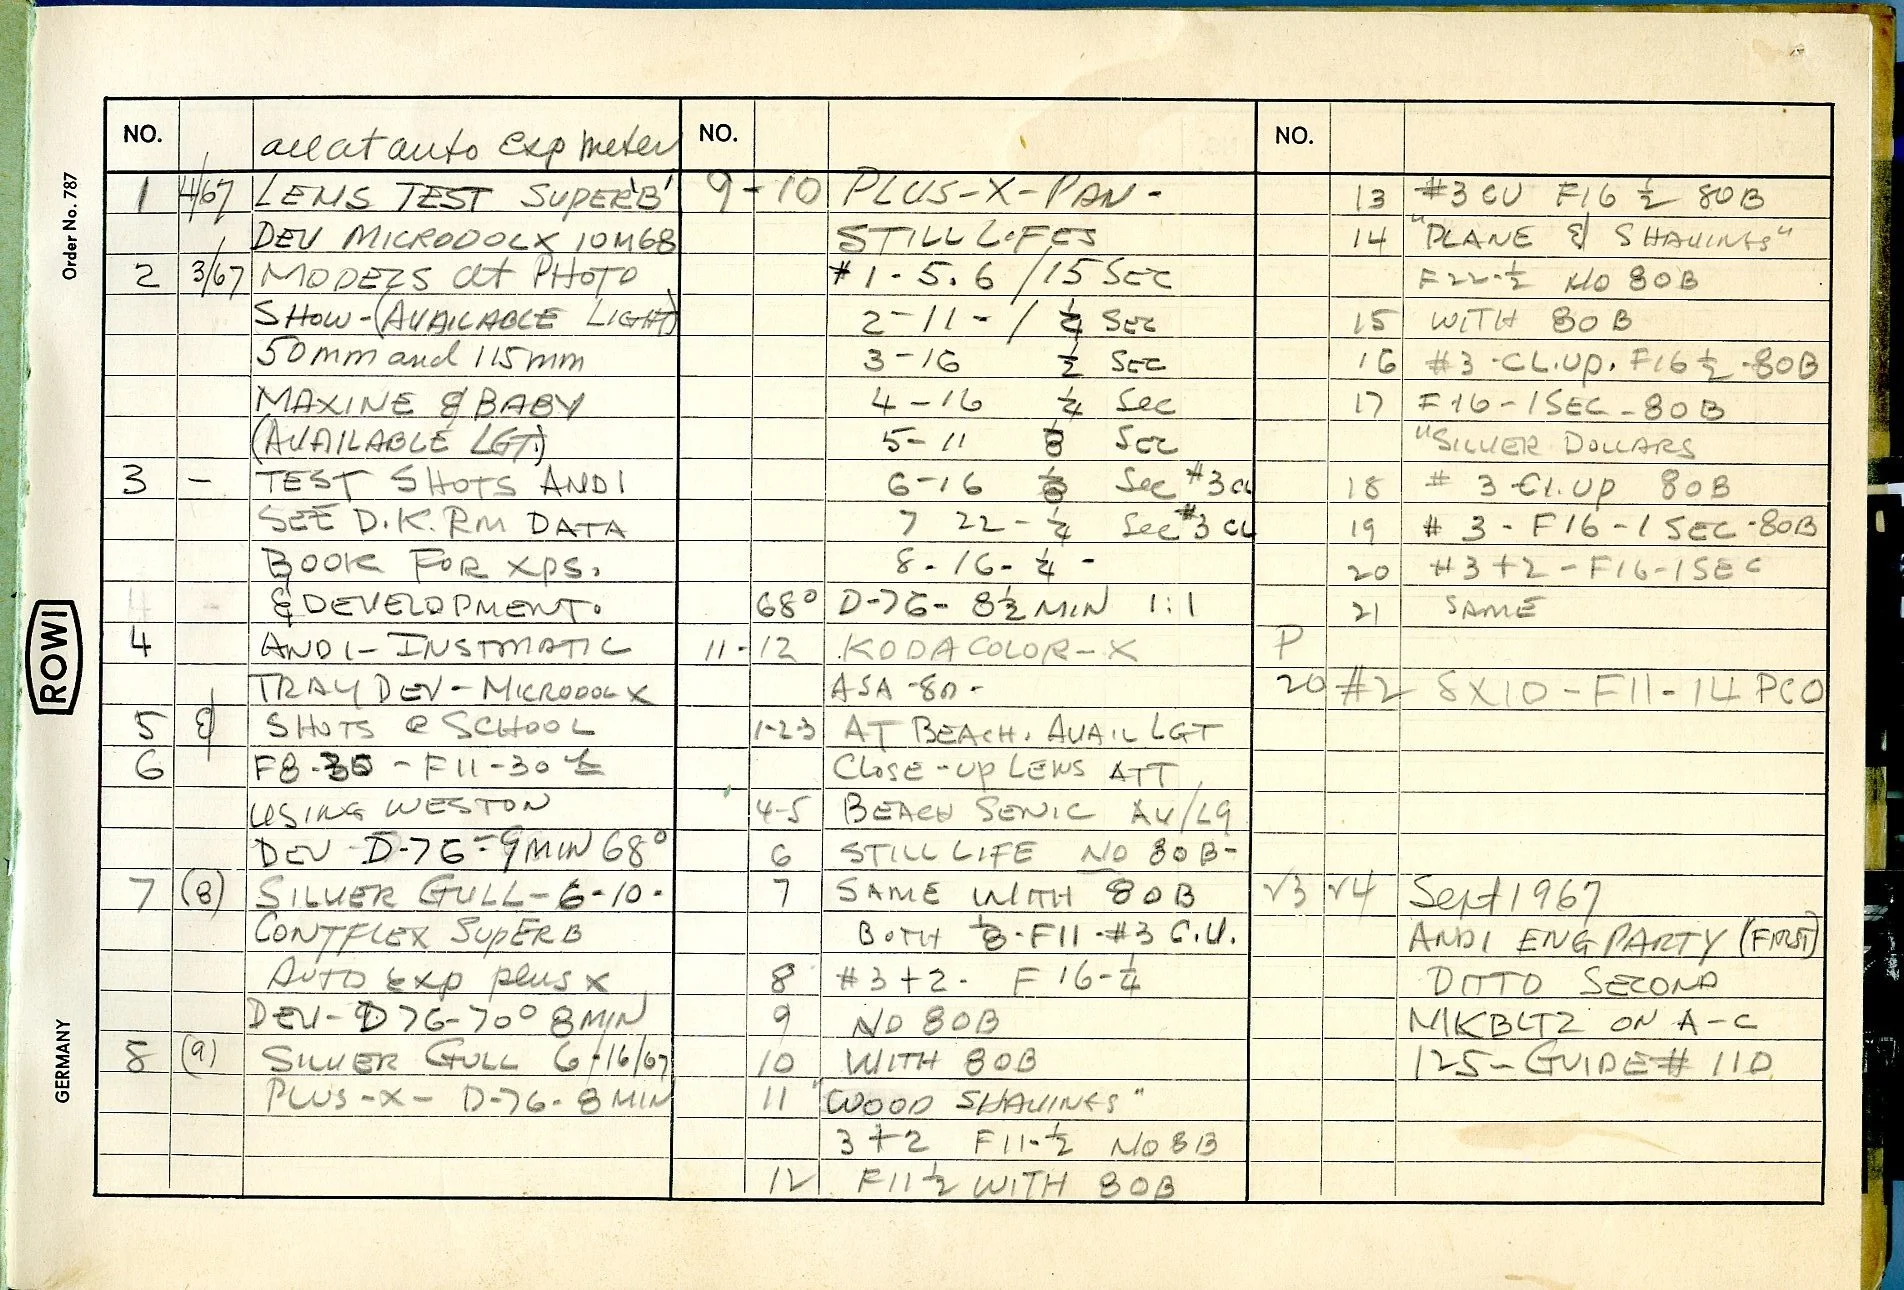 Order No. 787
ROWI
GERMANY
NO. all at auto exp meter
1 4/67 LENS TEST SUPER'B'
DEV MICRODOLX 10M68
2 3/67 MODELS at PHOTO
SHOW-(AVAILABLE LIGHT)
50mm and 115mm
MAXINE & BABY
(AVAILABLE LGT.)
3 - TEST SHOTS ANDI
SEE D.K.RM DATA
BOOK FOR XPS.
4 - & DEVELOPMENT.
4 ANDI- INSTMATIC
TRAY DEV- MICRODOLX
5 & SHOTS @ SCHOOL
6 F8-30 - F11-30
USING WESTON
DEV D-76-9MIN 68°
7 (8) SILVER GULL-6-10-
CONTFLEX SUPERB
AUTO EXP plus x
DEV- D76-70° 8MIN
8 (9) SILVER GULL 6/16/67
PLUS-X- D-76-8MIN
NO.
9-10 PLUS-X-PAN-
STILL LIFES
#1-5.6 /15 SEC
2-11- / 1/4 SEC
3-16 1/2 SEC
4-16 1/4 SEC
5-11 1/8 SEC
6-16 Sec #3 CU
7 22- 1/4 Sec #3 CU
8-16- 1/4 -
68° D-76- 8 1/2 MIN 1:1
11-12 KODACOLOR-X
ASA-80-
1-2-3 AT BEACH. AVAIL LGT
CLOSE-UP LENS ATT
4-5 BEACH SENIC AV/LG
6 STILL LIFE NO 80B-
7 SAME WITH 80B
BOTH 1/8-F11-#3 C.U.
8 #3+2- F16-1/4
9 NO 80B
10 WITH 80B
11 "WOOD SHAVINGS"
3+2 F11-1/2 NO 8B
12 F11 1/2 WITH 80B
NO.
13 #3 CU F16 1/2 80B
14 "PLANE & SHAVINGS"
F22-1/2 NO 80B
15 WITH 80B
16 #3-CL.UP. F16 1/2-80B
17 F16-1SEC-80B
"SILVER DOLLARS
18 # 3 CL.UP 80B
19 # 3-F16-1SEC-80B
20 #3+2-F16-1SEC
21 SAME
P
20 #2 8X10-F11-14 PCO
√3 √4 Sept 1967
ANDI ENG PARTY (FIRST)
DITTO SECOND
MIKBLTZ ON A-C
125-GUIDE# 110